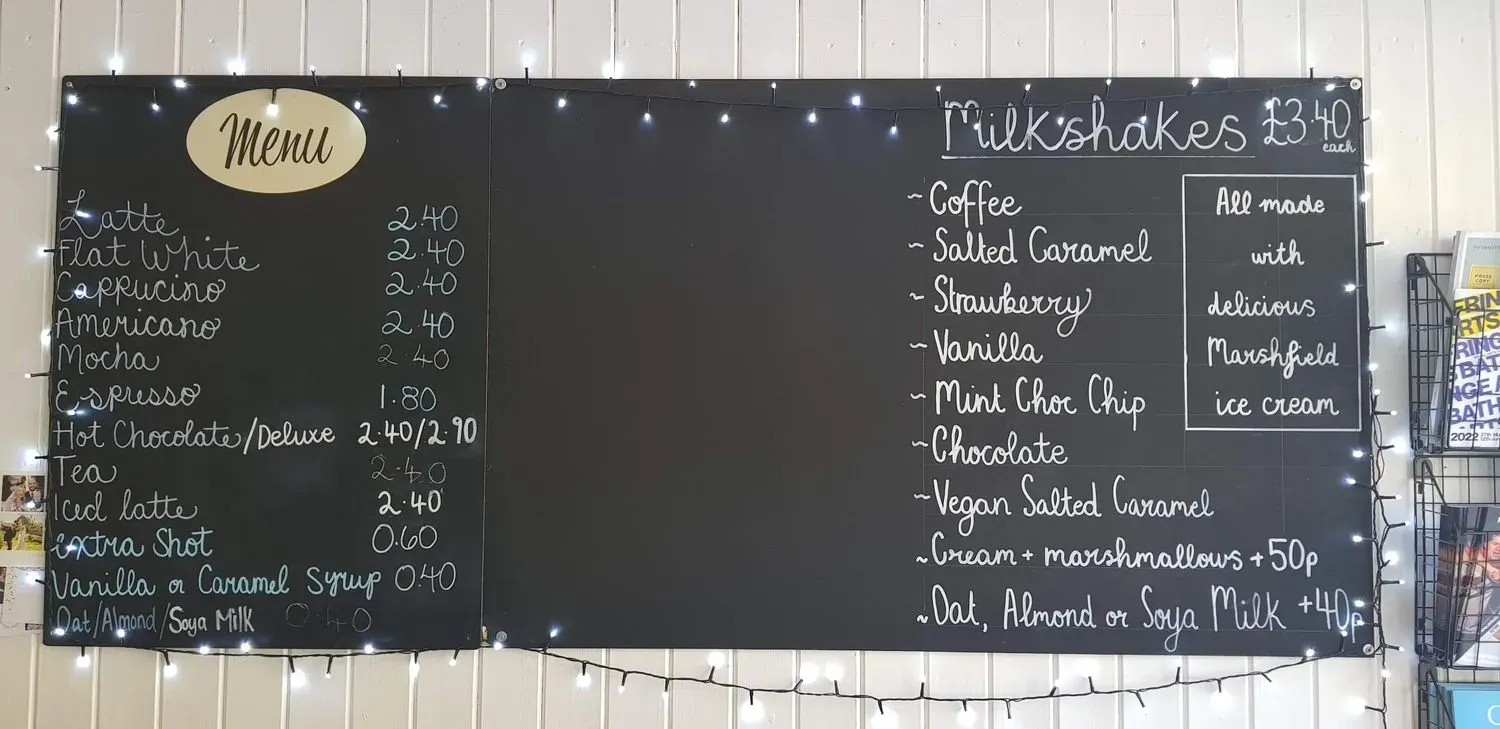 Menu
Latte 2.40
Flat White 2.40
Cappucino 2.40
Americano 2.40
Mocha 2.40
Espresso 1.80
Hot Chocolate/Deluxe 2.40/2.90
Tea 2.40
Iced latte 2.40
extra Shot 0.60
Vanilla or Caramel Syrup 0.40
Oat/Almond/Soya Milk 0.40
Milkshakes £3.40
each
~Coffee
~Salted Caramel
~Strawberry
~Vanilla
~Mint Choc Chip
~Chocolate
~Vegan Salted Caramel
~Cream + marshmallows +50p
~Oat, Almond or Soya Milk +40p
All made
with
delicious
Marshfield
ice cream
HOUSE
COPY
BATH
2022